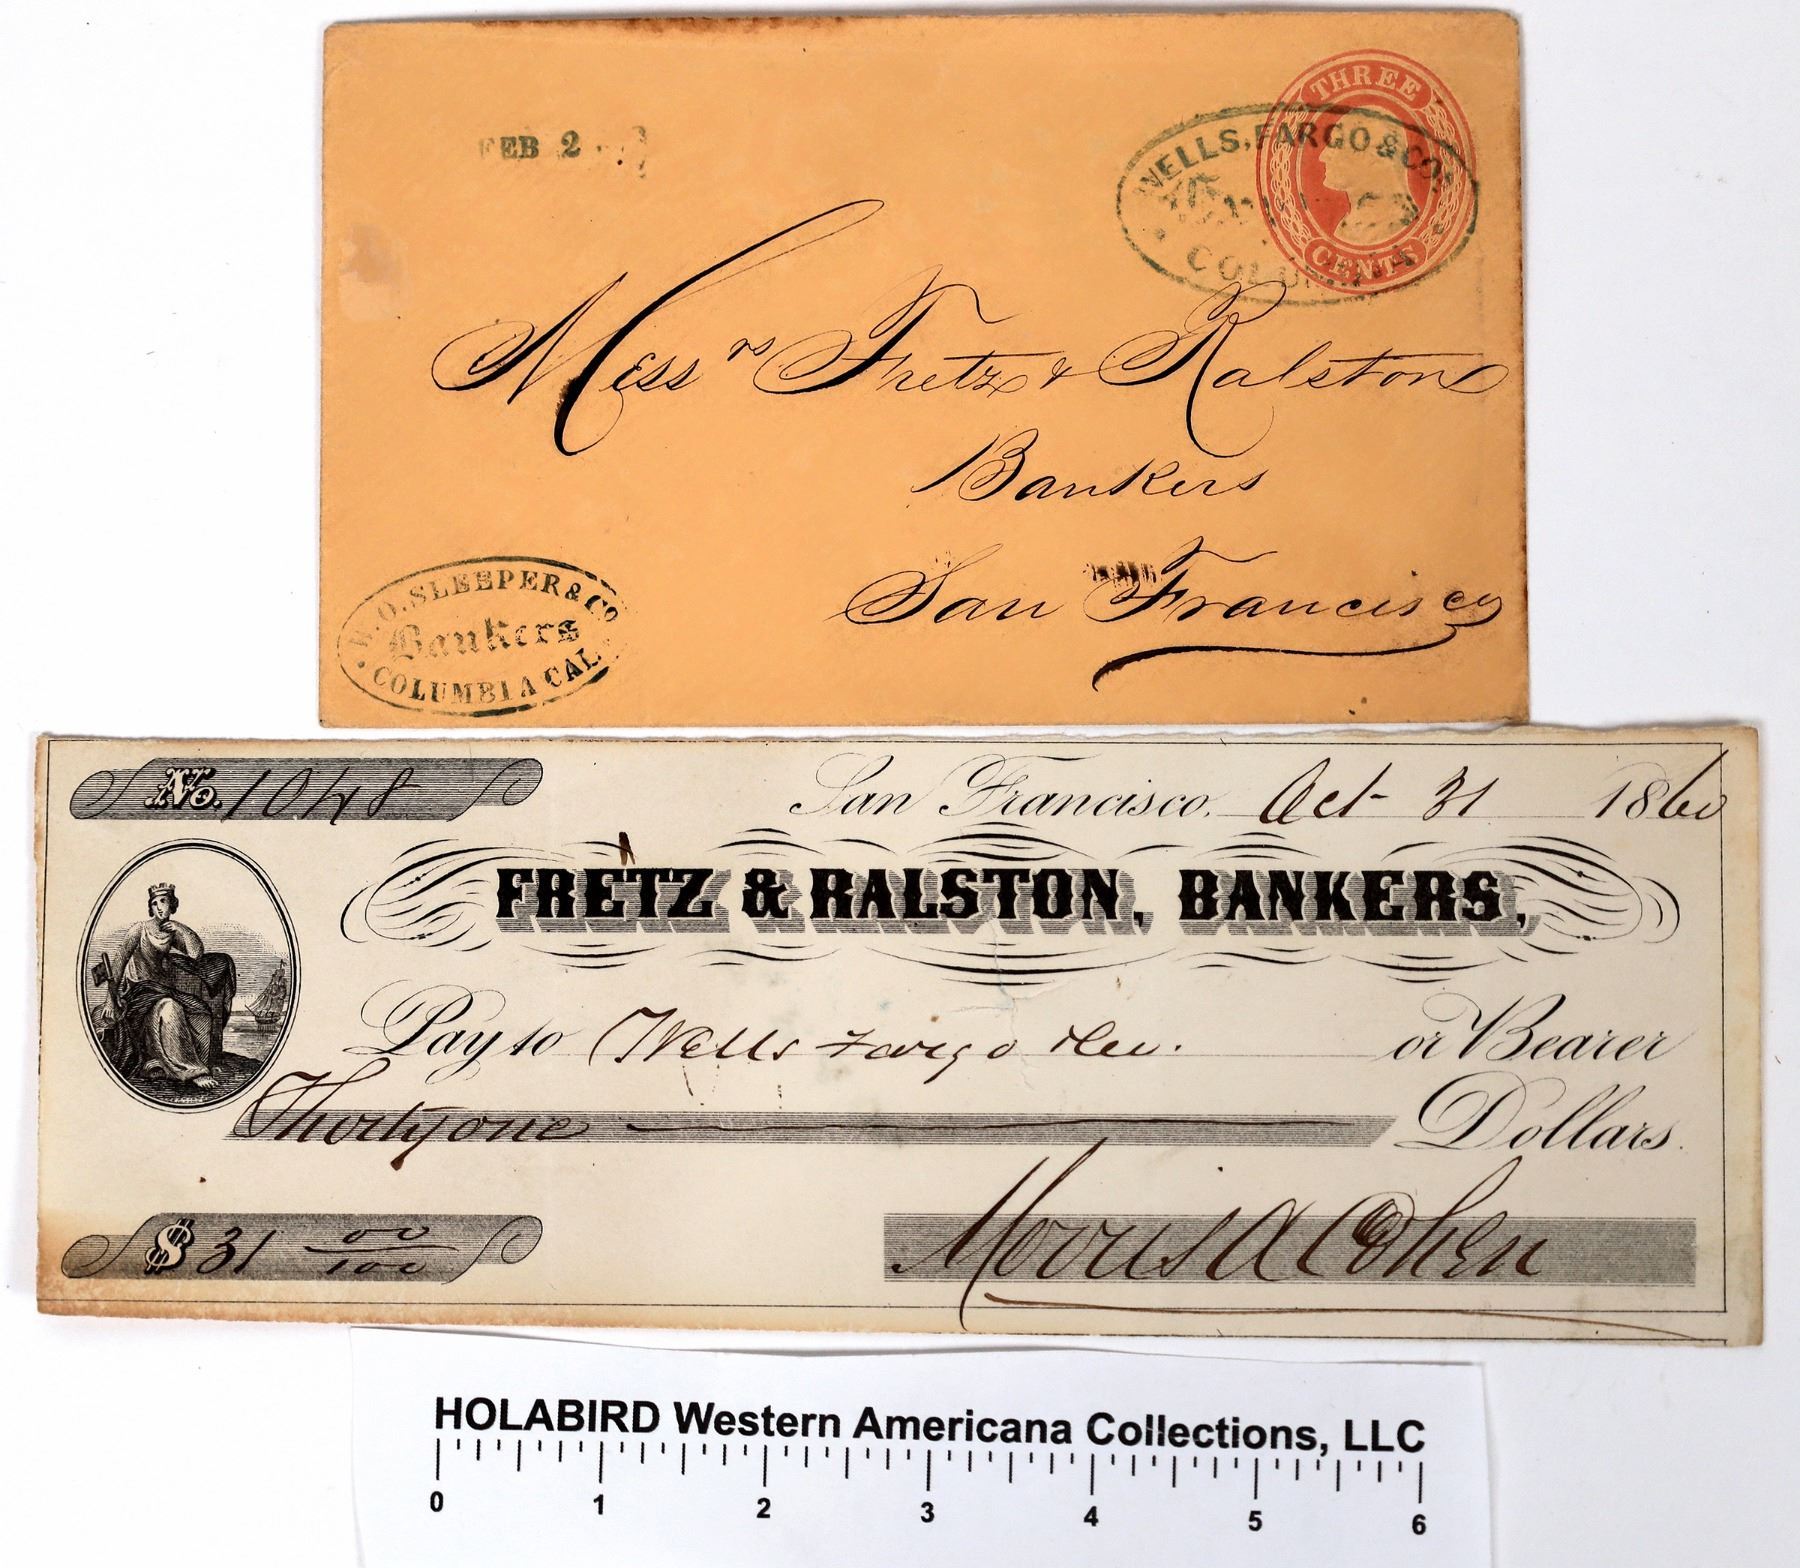 THREE
CENTS
FEB 2
WELLS, FARGO & CO.
Messrs Fretz & Ralston
Bankers
San Francisco
O. SLEEPER & Co
Bankers
COLUMBIA CAL.
No. 1048
San Francisco, Oct 31 1860
FRETZ & RALSTON, BANKERS,
Pay to Wells Fargo or Bearer
Thortyone Dollars.
$ 31 00/100
Morris A Cohen
HOLABIRD Western Americana Collections, LLC
0 1 2 3 4 5 6